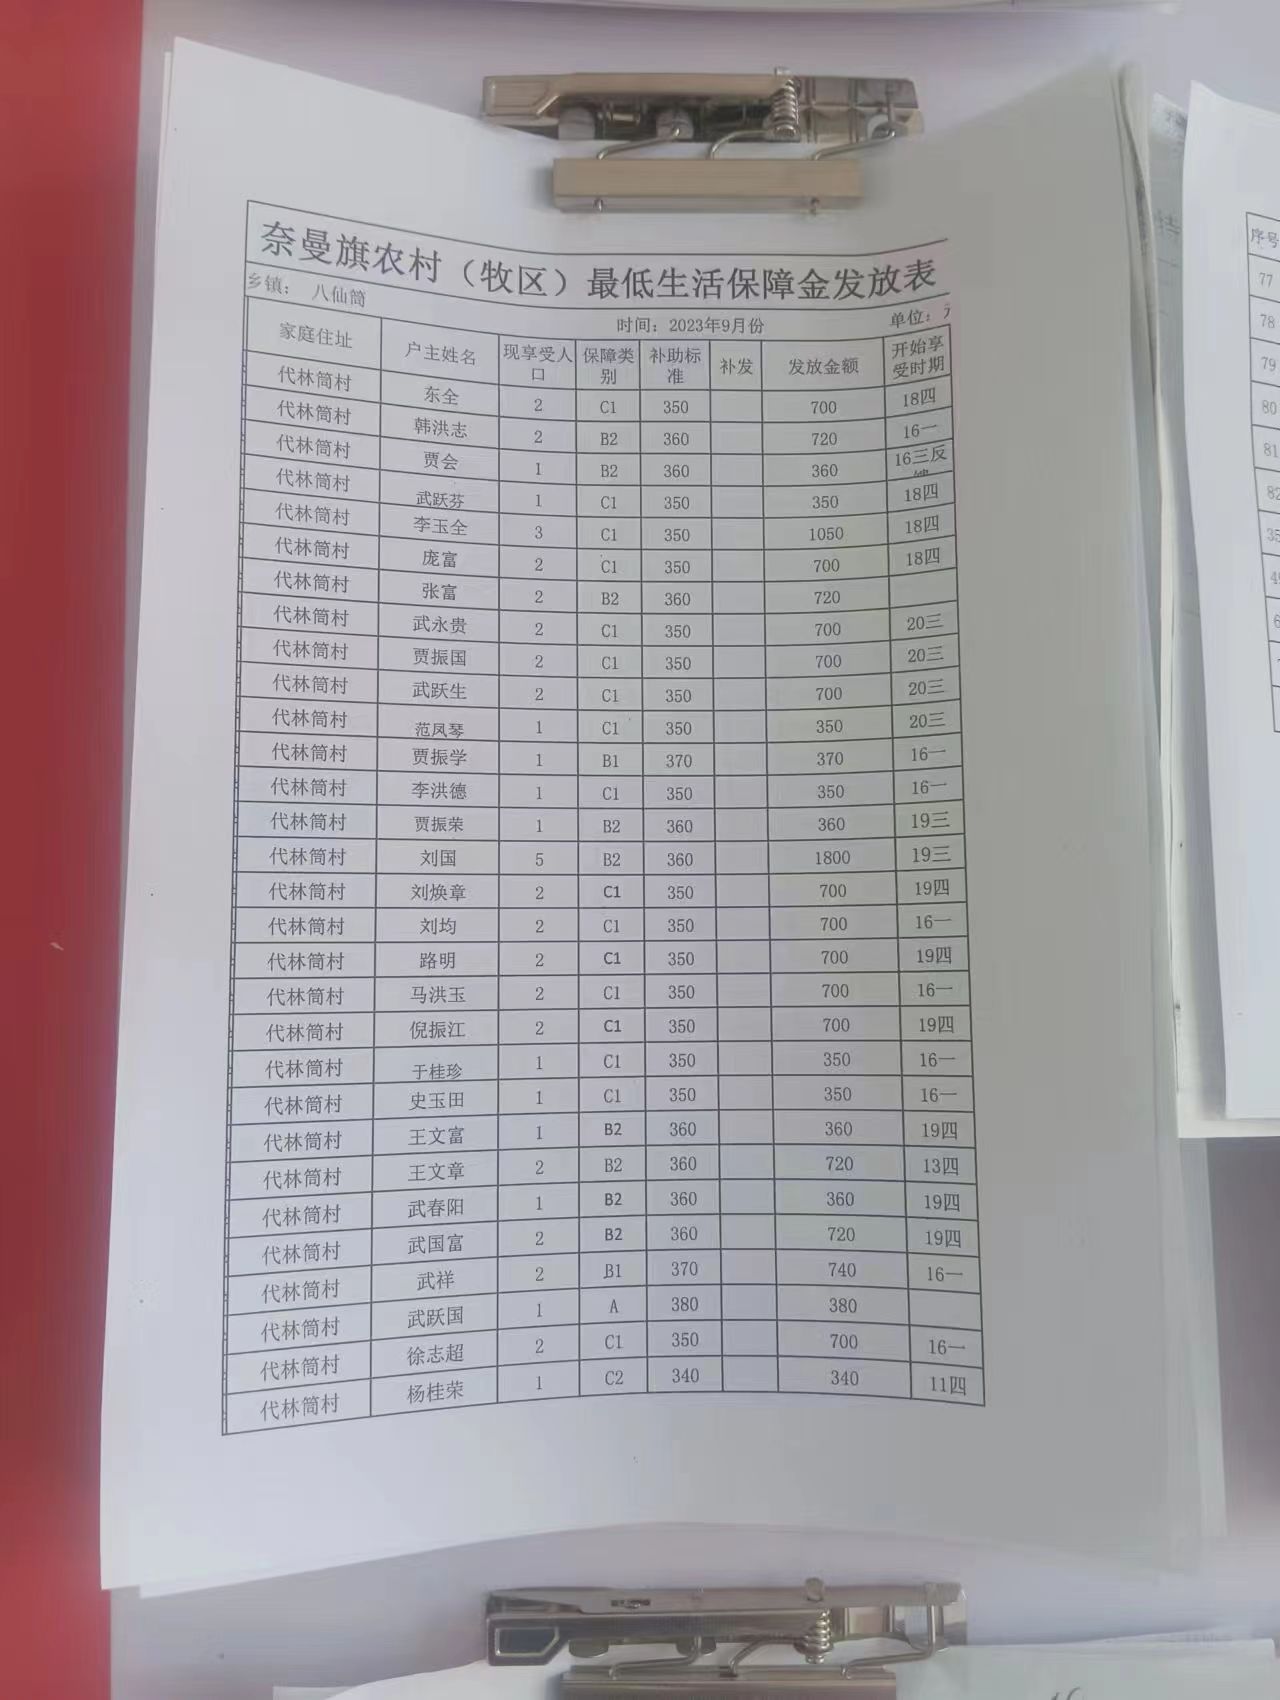 奈曼旗农村（牧区）最低生活保障金发放表
乡镇： 八仙筒 时间：2023年9月份 单位：
家庭住址 户主姓名 现享受人口 保障类别 补助标准 补发 发放金额 开始享受时期
代林筒村 东全 2 C1 350 700 18四
代林筒村 韩洪志 2 B2 360 720 16一
代林筒村 贾会 1 B2 360 360 16三反
代林筒村 武跃芬 1 C1 350 350 18四
代林筒村 李玉全 3 C1 350 1050 18四
代林筒村 庞富 2 C1 350 700 18四
代林筒村 张富 2 B2 360 720
代林筒村 武永贵 2 C1 350 700 20三
代林筒村 贾振国 2 C1 350 700 20三
代林筒村 武跃生 2 C1 350 700 20三
代林筒村 范凤琴 1 C1 350 350 20三
代林筒村 贾振学 1 B1 370 370 16一
代林筒村 李洪德 1 C1 350 350 16一
代林筒村 贾振荣 1 B2 360 360 19三
代林筒村 刘国 5 B2 360 1800 19三
代林筒村 刘焕章 2 C1 350 700 19四
代林筒村 刘均 2 C1 350 700 16一
代林筒村 路明 2 C1 350 700 19四
代林筒村 马洪玉 2 C1 350 700 16一
代林筒村 倪振江 2 C1 350 700 19四
代林筒村 于桂珍 1 C1 350 350 16一
代林筒村 史玉田 1 C1 350 350 16一
代林筒村 王文富 1 B2 360 360 19四
代林筒村 王文章 2 B2 360 720 13四
代林筒村 武春阳 1 B2 360 360 19四
代林筒村 武国富 2 B2 360 720 19四
代林筒村 武祥 2 B1 370 740 16一
代林筒村 武跃国 1 A 380 380
代林筒村 徐志超 2 C1 350 700 16一
代林筒村 杨桂荣 1 C2 340 340 11四
序号
77
78
79
80
81
82